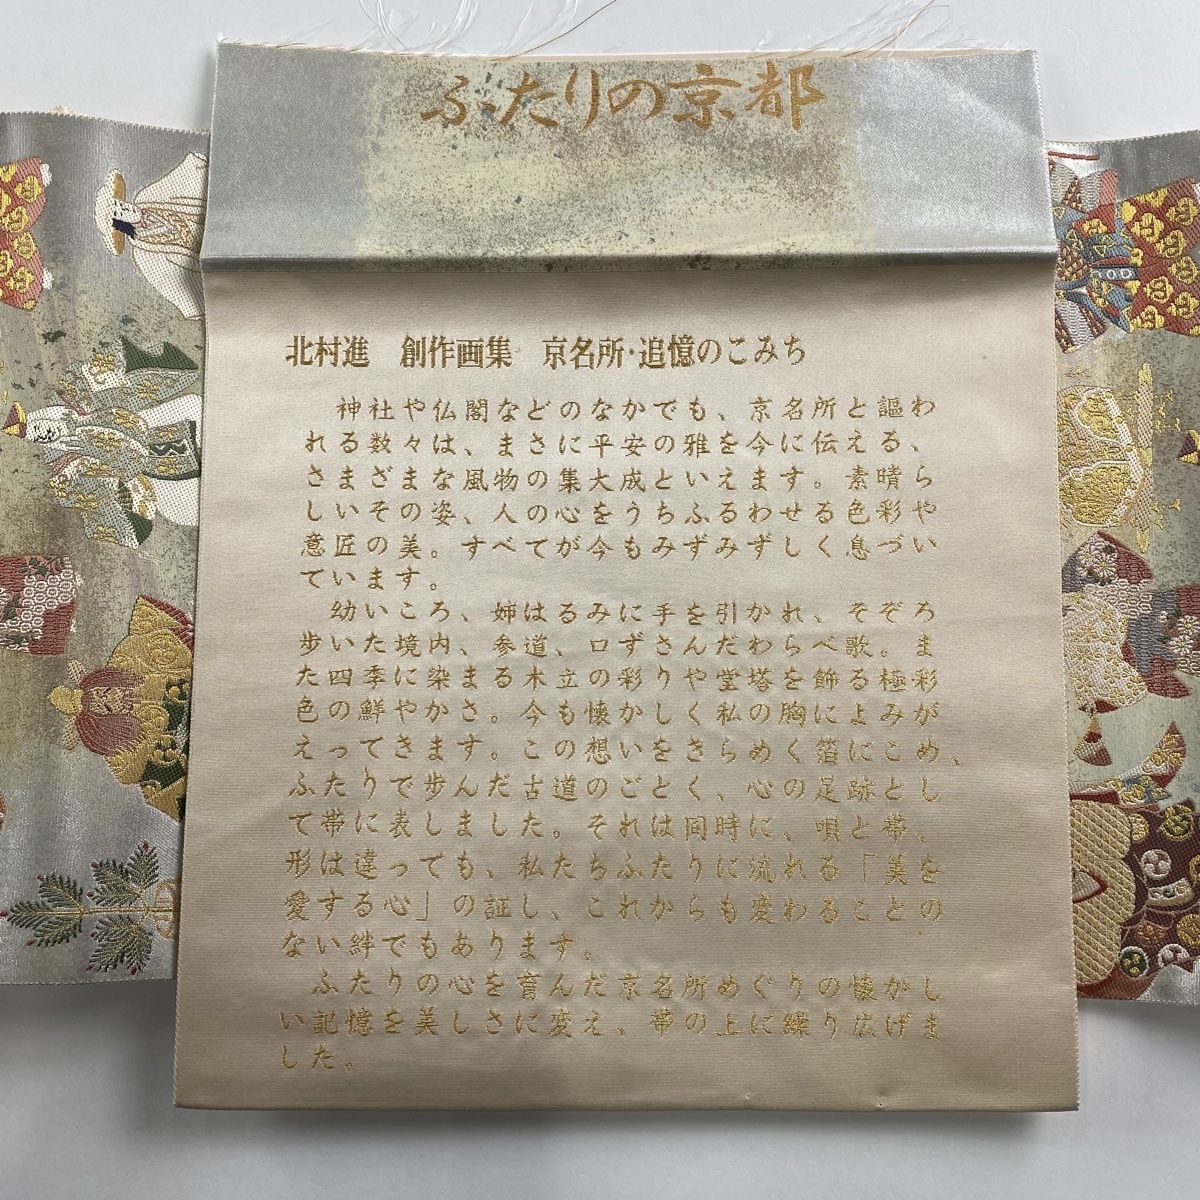 ふたりの京都
北村進　創作画集　京名所・追憶のこみち
神社や仏閣などのなかでも、京名所と謳わ
れる数々は、まさに平安の雅を今に伝える、
さまざまな風物の集大成といえます。素晴ら
しいその姿、人の心をうちふるわせる色彩や
意匠の美。すべてが今もみずみずしく息づい
ています。
幼いころ、姉はるみに手を引かれ、そぞろ
歩いた境内、参道、口ずさんだわらべ歌。ま
た四季に染まる木立の彩りや堂塔を飾る極彩
色の鮮やかさ。今も懐かしく私の胸によみが
えってきます。この想いをきらめく箔にこめ、
ふたりで歩んだ古道のごとく、心の足跡とし
て帯に表しました。それは同時に、唄と帯、
形は違っても、私たちふたりに流れる「美を
愛する心」の証し、これからも変わることの
ない絆でもあります。
ふたりの心を育んだ京名所めぐりの懐かし
い記憶を美しさに変え、帯の上に繰り広げま
した。